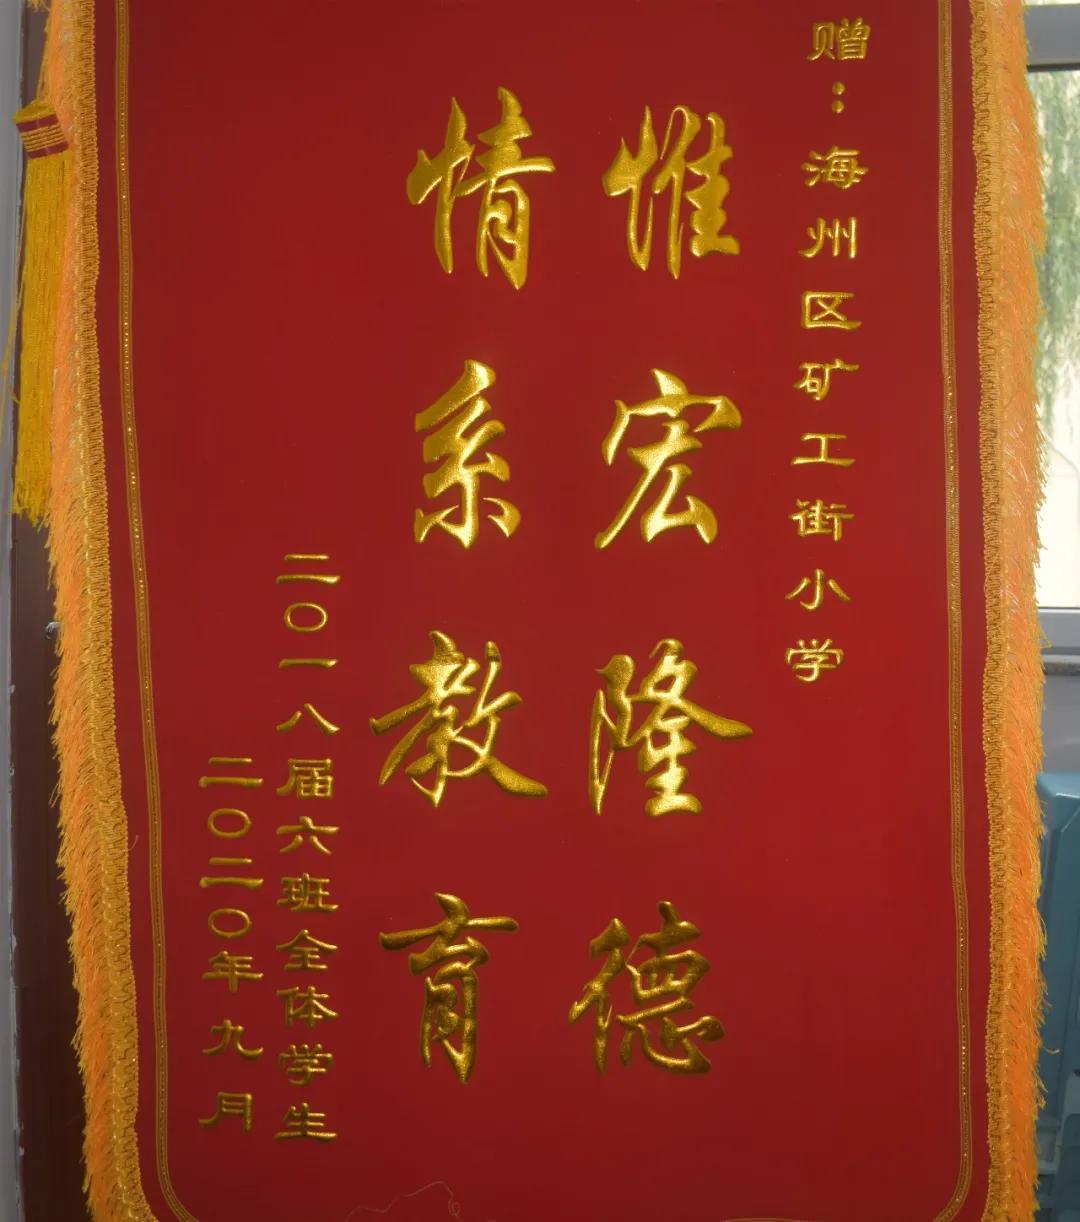 赠：海州区矿工街小学
惟宏隆德
情系教育
二〇一八届六班全体学生
二〇二〇年九月